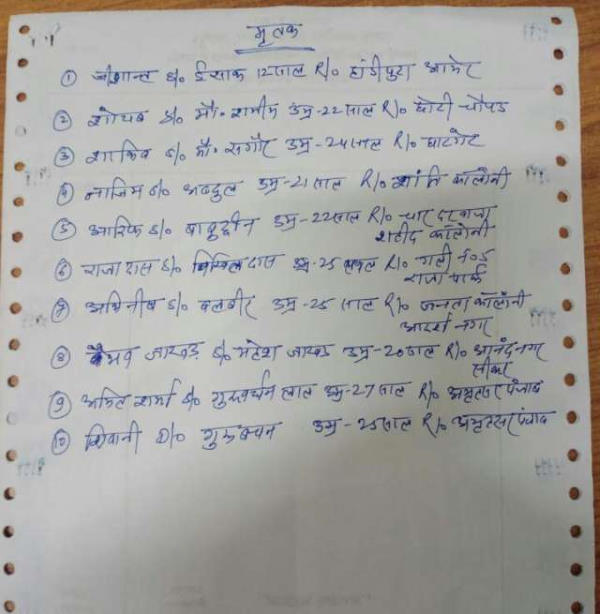 मृतक
① जीशान S/o ईसाक 12 साल R/o हांडीपुरा आमेर
② शोयब S/o मौ. शमीम उम्र-22 साल R/o छोटी चौपड
③ शाकिब S/o मौ. सगीर उम्र-24 साल R/o घाटगेट
④ नाजिम S/o अब्दुल उम्र-21 साल R/o शांति कॉलोनी
⑤ आरिफ S/o बाबुद्दीन उम्र-22 साल R/o चार दरवाजा
शहीद कॉलोनी
⑥ राजा दास S/o दास उम्र-25 साल R/o गली नं०5
राजा पार्क
⑦ अभिनीष S/o बलबीर उम्र-25 साल R/o जनता कॉलोनी
आदर्श नगर
⑧ वैभव जाखड S/o महेश जाखड उम्र-20 साल R/o आनंद नगर
सीकर
⑨ अमित शर्मा S/o लाल उम्र-27 साल R/o अमृतसर पंजाब
⑩ शिवानी D/o गुरूबचन उम्र-25 साल R/o अमृतसर पंजाब